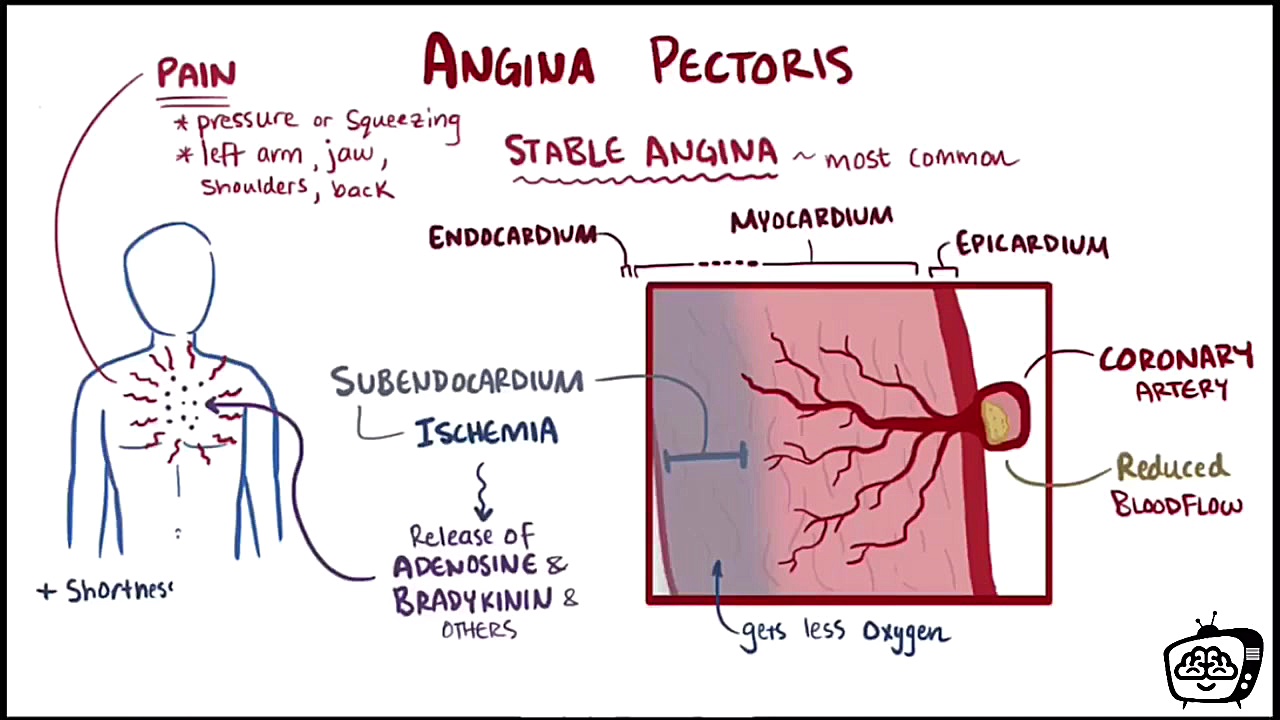 ANGINA PECTORIS
PAIN
* pressure or squeezing
* left arm, jaw,
shoulders, back
STABLE ANGINA ~ most common
ENDOCARDIUM
MYOCARDIUM
EPICARDIUM
SUBENDOCARDIUM
ISCHEMIA
Release of
ADENOSINE &
BRADYKININ &
OTHERS
CORONARY
ARTERY
Reduced
BLOODFLOW
gets less oxygen
+ Shortness